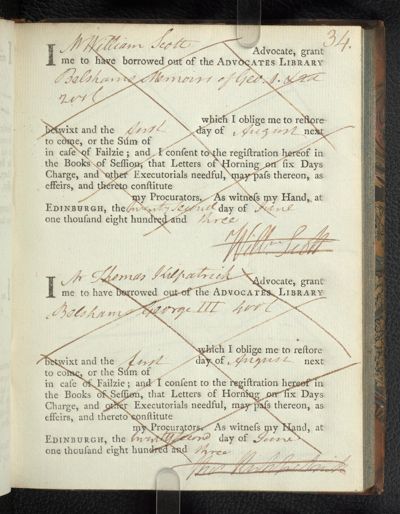 34.
I Mr William Scott Advocate, grant
me to have borrowed out of the ADVOCATES LIBRARY
Belshams Memoirs of Geo.
2 vol
which I oblige me to reſtore
betwixt and the first day of August next
to come, or the Sum of
in caſe of Failzie; and I conſent to the regiſtration hereof in
the Books of Seſſion, that Letters of Horning on ſix Days
Charge, and other Executorials needful, may paſs thereon, as
effeirs, and thereto conſtitute
my Procurators. As witneſs my Hand, at
EDINBURGH, the twenty second day of June
one thouſand eight hundred and three
Willm Scott
I Mr Thomas Kilpatrick Advocate, grant
me to have borrowed out of the ADVOCATES LIBRARY
Belshams George III 4 vol
which I oblige me to reſtore
betwixt and the first day of August next
to come, or the Sum of
in caſe of Failzie; and I conſent to the regiſtration hereof in
the Books of Seſſion, that Letters of Horning on ſix Days
Charge, and other Executorials needful, may paſs thereon, as
effeirs, and thereto conſtitute
my Procurators. As witneſs my Hand, at
EDINBURGH, the twenty second day of June
one thouſand eight hundred and three